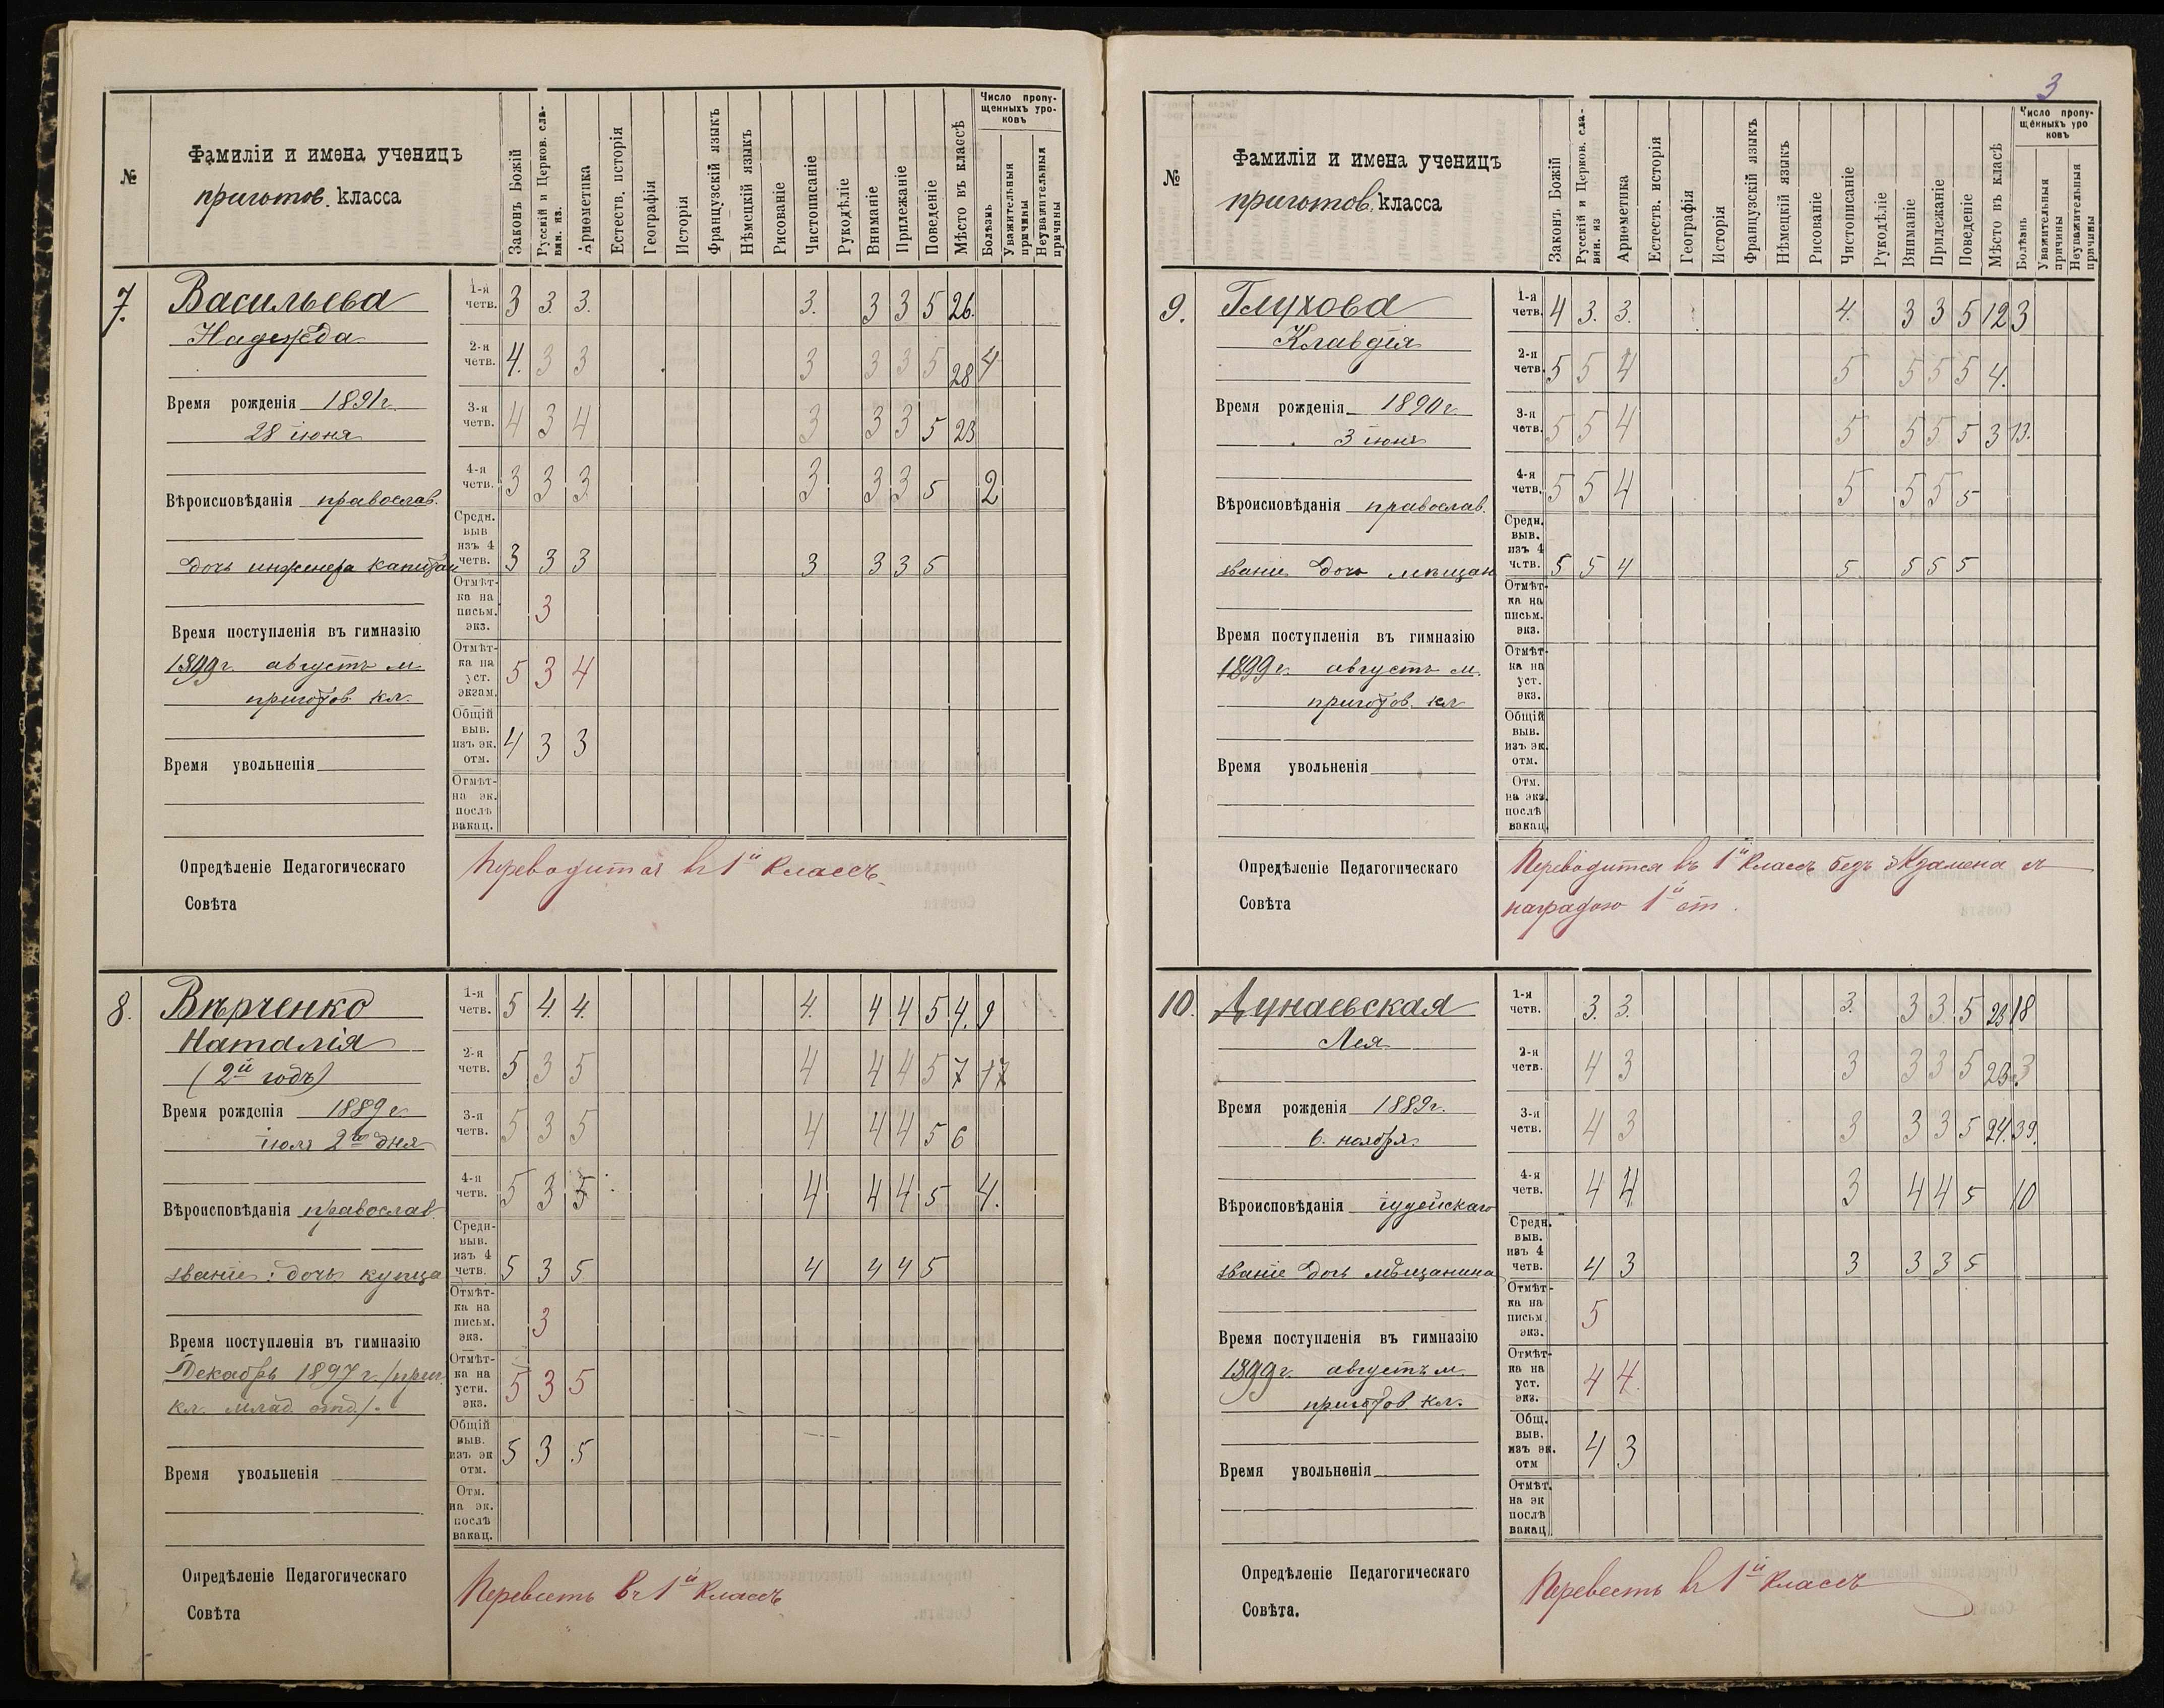 №
Фамиліи и имена ученицъ
приготов. класса
Законъ Божій
Русскій и Церков. сла-
вян. яз.
Ариѳметика
Естеств. исторія
Географія
Исторія
Французскій языкъ
Нѣмецкій языкъ
Рисованіе
Чистописаніе
Рукодѣліе
Вниманіе
Прилежаніе
Поведеніе
Мѣсто въ классѣ
Число пропу-
щенныхъ уро-
ковъ
Болѣзнь
Уважительныя
причины
Неуважительныя
причины
7.
Васильева
Надежда
Время рожденія 1891 г.
28 іюня
Вѣроисповѣданія православ.
дочь инженера капитан
Время поступленія въ гимназію
1899 г. августъ м.
приготов. кл.
Время увольненія
1-я четв. 3 3. 3. 3. 3 3 5 26.
2-я четв. 4. 3 3 3 3 3 5 28 4
3-я четв. 4 3 4 3 3 3 5 23
4-я четв. 3 3 3 3 3 3 5 2
Средн. выв изъ 4 четв. 3 3 3 3 3 3 5
Отмѣт-ка на письм. экз. 3
Отмѣт-ка на уст. экзам. 5 3 4
Общій выв. изъ эк. отм. 4 3 3
Отмѣт- на эк. послѣ вакац.
Опредѣленіе Педагогическаго
Совѣта
Переводится въ 1й классъ
8.
Вѣрченко
Наталія
(2й годъ)
Время рожденія 1889 г.
іюля 2го дня
Вѣроисповѣданія православ.
званіе: дочь купца
Время поступленія въ гимназію
Декабрь 1897 г. /приг.
кл. млад. отд./.
Время увольненія
1-я четв. 5 4 4. 4. 4 4 5 4. 9
2-я четв. 5 3 5 4 4 4 5 7 17
3-я четв. 5 3 5 4 4 4 5 6
4-я четв. 5 3 5 4 4 4 5 4.
Средн- выв. изъ 4 четв. 5 3 5 4 4 4 5
Отмѣт-ка на письм. экз. 3
Отмѣт-ка на устн. экз. 5 3 5
Общій выв. изъ эк отм. 5 3 5
Отм. на эк. послѣ вакац.
Опредѣленіе Педагогическаго
Совѣта
Перевесть въ 1й классъ
3
№
Фамиліи и имена ученицъ
приготов. класса
Законъ Божій
Русскій и Церков. сла-
вян. яз
Ариѳметика
Естеств. исторія
Географія
Исторія
Французскій языкъ
Нѣмецкій языкъ
Рисованіе
Чистописаніе
Рукодѣліе
Вниманіе
Прилежаніе
Поведеніе
Мѣсто въ класѣ
Число пропу-
щенныхъ уро
ковъ
Болѣзнь
Уважительныя
причины
Неуважительныя
причины
9.
Глухова
Клавдія
Время рожденія 1890 г.
3 іюня
Вѣроисповѣданія православ.
званіе дочь мѣщан
Время поступленія въ гимназію
1899 г. августъ м.
приготов. кл
Время увольненія
1-я четв. 4 3. 3. 4. 3 3 5 12 3
2-я четв. 5 5 4 5 5 5 5 4.
3-я четв. 5 5 4 5 5 5 5 3 13.
4-я четв. 5 5 4 5 5 5 5
Средн. выв. изъ 4 четв. 5 5 4 5. 5 5 5
Отмѣт-ка на письм. экз.
Отмѣт-ка на уст. экз.
Общій выв. изъ эк. отм.
Отм. на экз. послѣ вакац.
Опредѣленіе Педагогическаго
Совѣта
Переводится въ 1й классъ безъ экзамена съ
наградою 1й ст.
10.
Дунаевская
Лея
Время рожденія 1889 г.
6. ноября
Вѣроисповѣданія іудейскаго
званіе дочь мѣщанина
Время поступленія въ гимназію
1899 г. августъ м.
приготов кл.
Время увольненія
1-я четв. 3. 3. 3. 3 3 5 23 18
2-я четв. 4 3 3 3 3 5 23 3
3-я четв. 4 3 3 3 3 5 24. 39.
4-я четв. 4 4 3 4 4 5 10
Средн. выв. изъ 4 четв. 4 3 3 3 3 5
Отмѣт-ка на письм экз. 5
Отмѣт-ка на уст. экз. 4 4.
Общ. выв. изъ эк. отм 4 3
Отмѣт. на эк послѣ вакац
Опредѣленіе Педагогическаго
Совѣта.
Перевесть въ 1й классъ